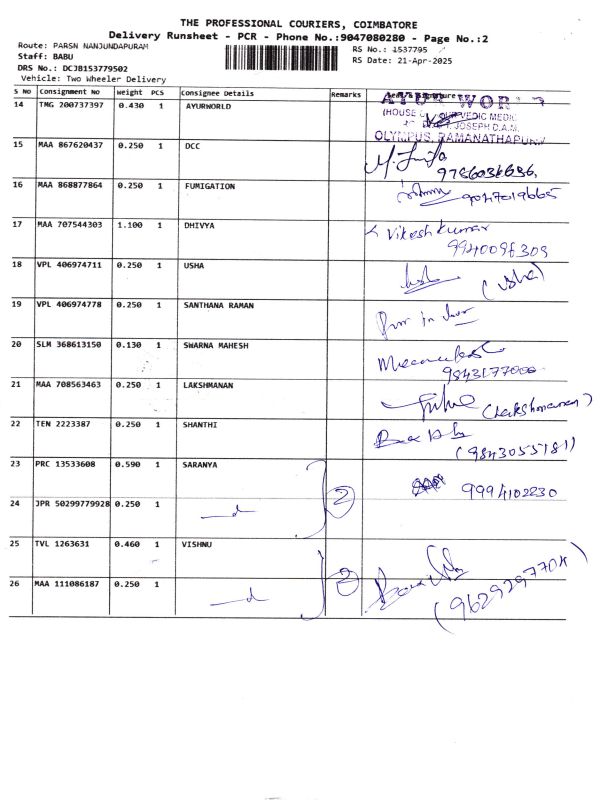 THE PROFESSIONAL COURIERS, COIMBATORE
Delivery Runsheet - PCR - Phone No.:9047080280 - Page No.:2
Route: PARSN NANJUNDAPURAM
RS No.: 1537795
Staff: BABU
RS Date: 21-Apr-2025
DRS No.: DCJB153779502
Vehicle: Two Wheeler Delivery
S NO Consignment No Weight PCS Consignee Details Remarks
14 TMG 200737397 0.430 1 AYURWORLD
AYUR WORLD
(HOUSE
VEDIC MEDIC
JOSEPH D.A.M.
OLYMPUS, RAMANATHAPURAM
15 MAA 867620437 0.250 1 DCC
9786036636,
16 MAA 868877864 0.250 1 FUMIGATION
9047019665
17 MAA 707544303 1.100 1 DHIVYA Vikesh kumar
9940096309
18 VPL 406974711 0.250 1 USHA (Usha)
19 VPL 406974778 0.250 1 SANTHANA RAMAN
20 SLM 368613150 0.130 1 SWARNA MAHESH
9843177000
21 MAA 708563463 0.250 1 LAKSHMANAN (Lakshmanan)
22 TEN 2223387 0.250 1 SHANTHI
(9843055781)
23 PRC 13533608 0.590 1 SARANYA 9994102230
2
24 JPR 50299779928 0.250 1
25 TVL 1263631 0.460 1 VISHNU
2
26 MAA 111086187 0.250 1